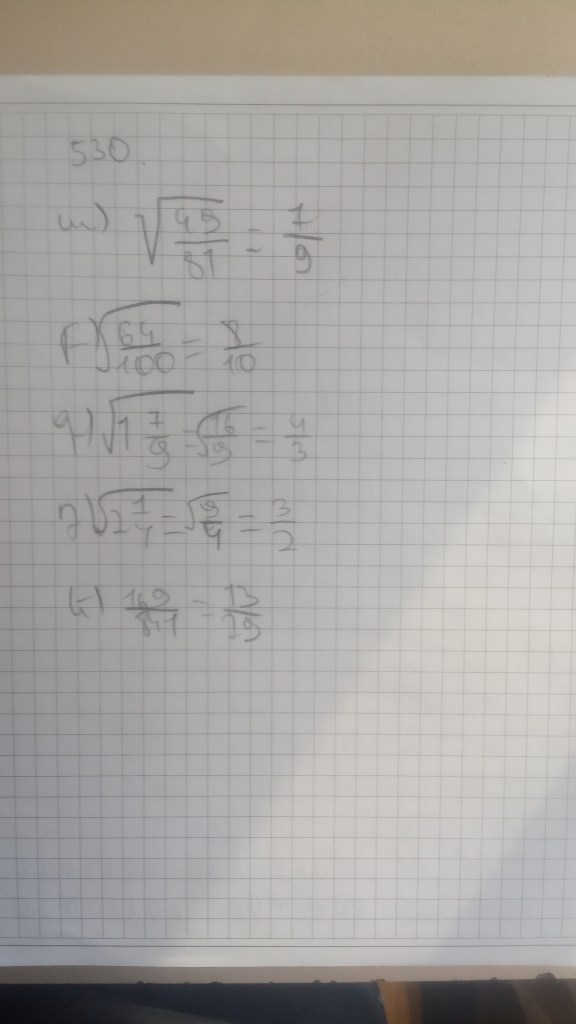 530.
ա) √49/81 = 7/9
բ) √64/100 = 8/10
գ) √1 7/9 = √16/9 = 4/3
դ) √2 1/4 = √9/4 = 3/2
ե) 169/841 = 13/29